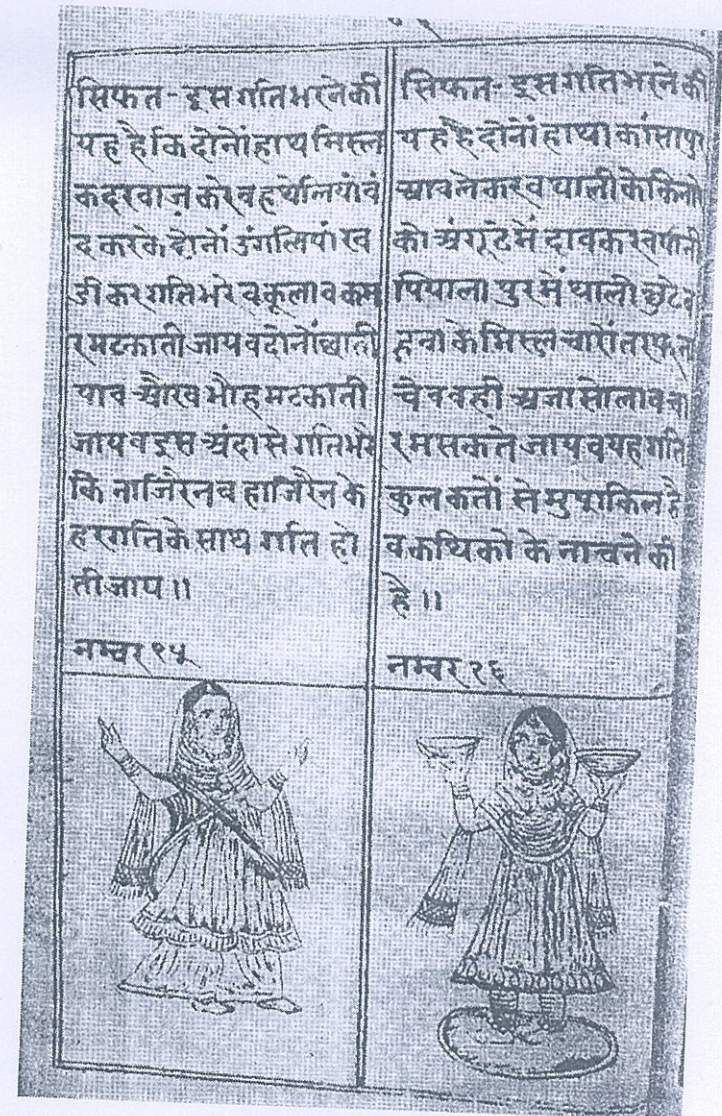 सिफत - इस गति भरने की
यह है कि दोनों हाथ मिस्ल
कदरवाज़ करे व हथेलियों बं
द करके दोनों उंगलियां ख
डी कर गति भरे व कूला व कम
र मटकाती जाय व दोनों छाती
याव औरव भौह मटकाती
जाय व इस अंदा से गति भरै
कि नाजिरैन व हाजिरैन के
हर गति के साथ गति हो
ती जाय ॥
नम्बर १५
सिफत - इस गति भरने की
यह है दोनों हाथों कांसापुर
आव लेकर व थाली के किनारे
को अंगूठे में दाब कर व पानी
पियाला पुर में थाली छुटे व
हवा के मिस्ल चारों तरफ ना
चे व वही अजासोला व चा
र मसकते जाय व यह गति
कुल कतों से मुशकिल है
व कथिकों के नाचने की
है ॥
नम्बर २६